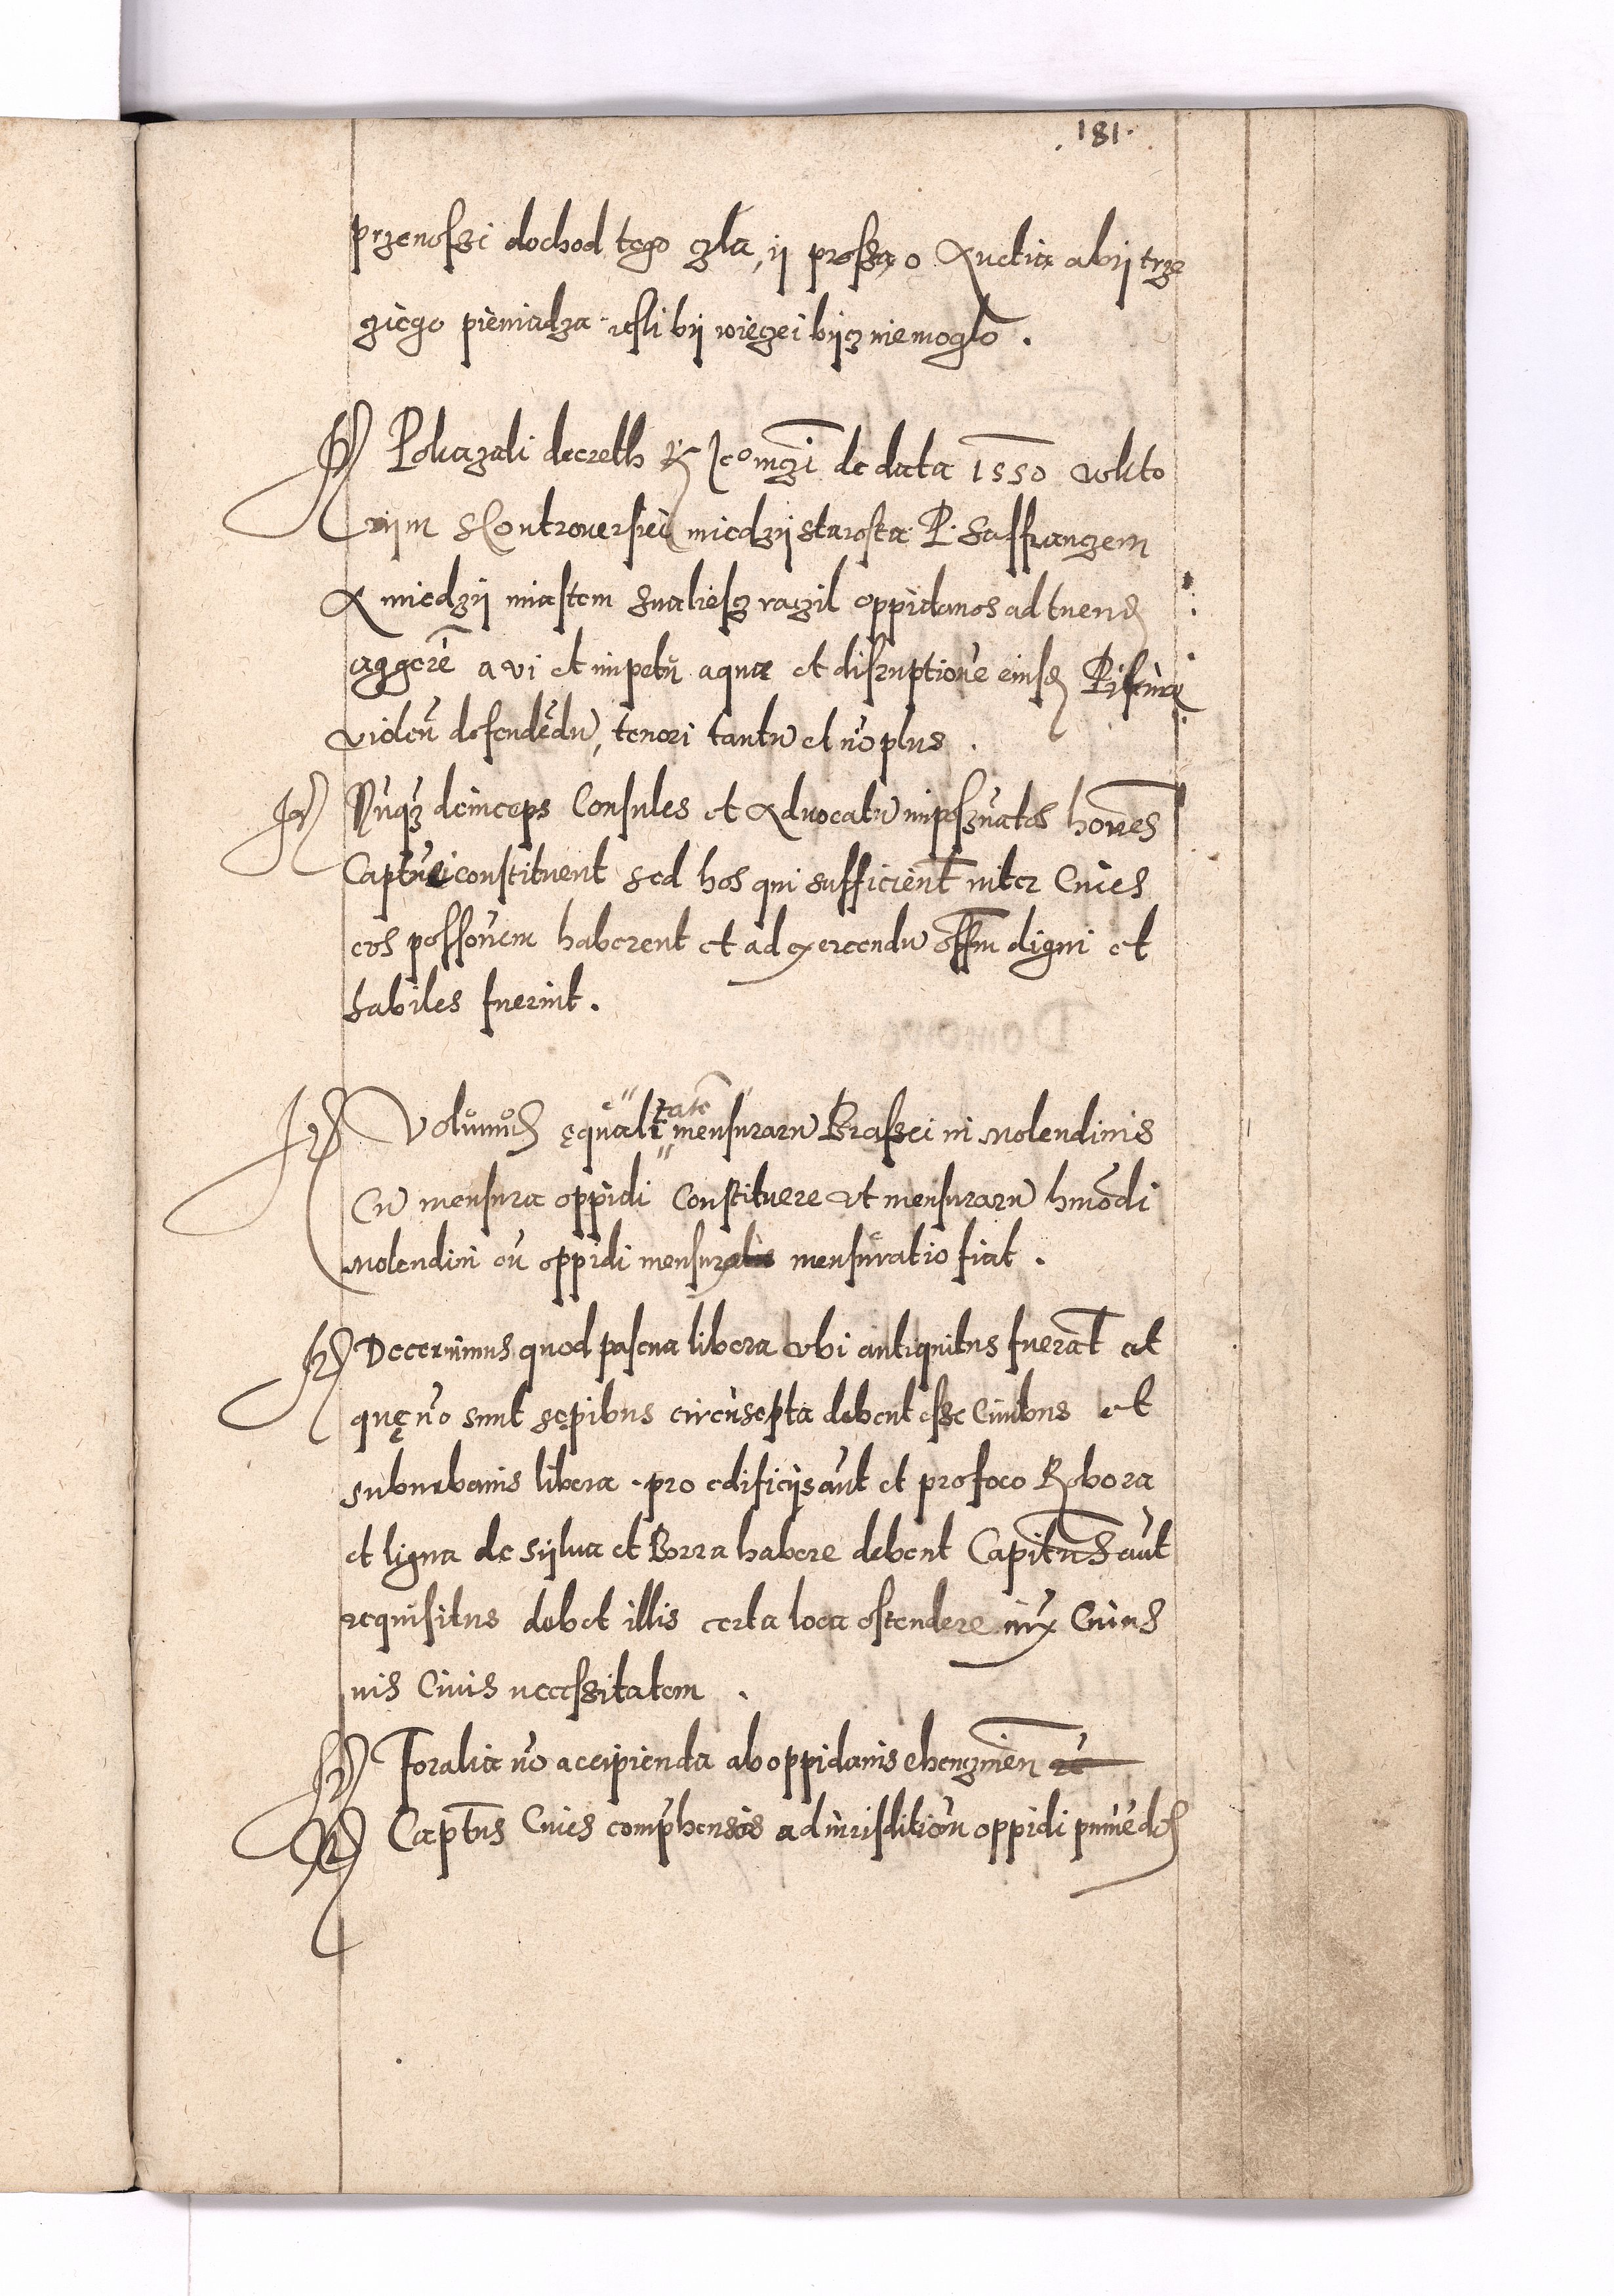 181.
przenoſsi dochod tego zla, ij proſsa o Auctia abij trze
ziego pieniadza ieſli bij wiezei bijz niemoglo.
It Pokazali decreth K Jeomczi de data 1550 wkto
rijm Controuersiei miedzij starosta P. Saffranzem
A miedzij miastem snalieſz raczil oppidanos ad tuend
aggerē a vi et impetū aquæ et diſruptione eiuſd Piſcinæ
videū defendēdū, teneri tantū et nō plus.
It Nūqz deinceps Consules et Aduocatū impoſs̄natos hoīnes
Captūs constituent sed hos qui sufficient̄ inter Ciues
eos poſsōnem haberent et ad exercendū offm̄ digni et
habiles fuerint.
It Volumus ęqualitatē mensurarū Braſsei in Molendinis
Cū mensura oppidi Constituere vt mensurarū hmōdi
Molendini cū oppidi mensuratio fiat.
It Decernimus quod pascua libera vbi antiquitus fuerāt et
quę nō sunt sępibus circūsepta debent eſse Ciuibus et
suburbanis libera. pro edificijs aūt et pro foco Robora
et ligna de Sylua et Borra habere debent Capitn̄s aūt
requisitus debet illis certa loca ostendere iux Cuius
uis Ciuis neceſsitatem.
It Foralia nō accipienda ab oppidanis
It Captn̄s Ciues comp̄hensos ad iurisditiōn oppidi puniēdos